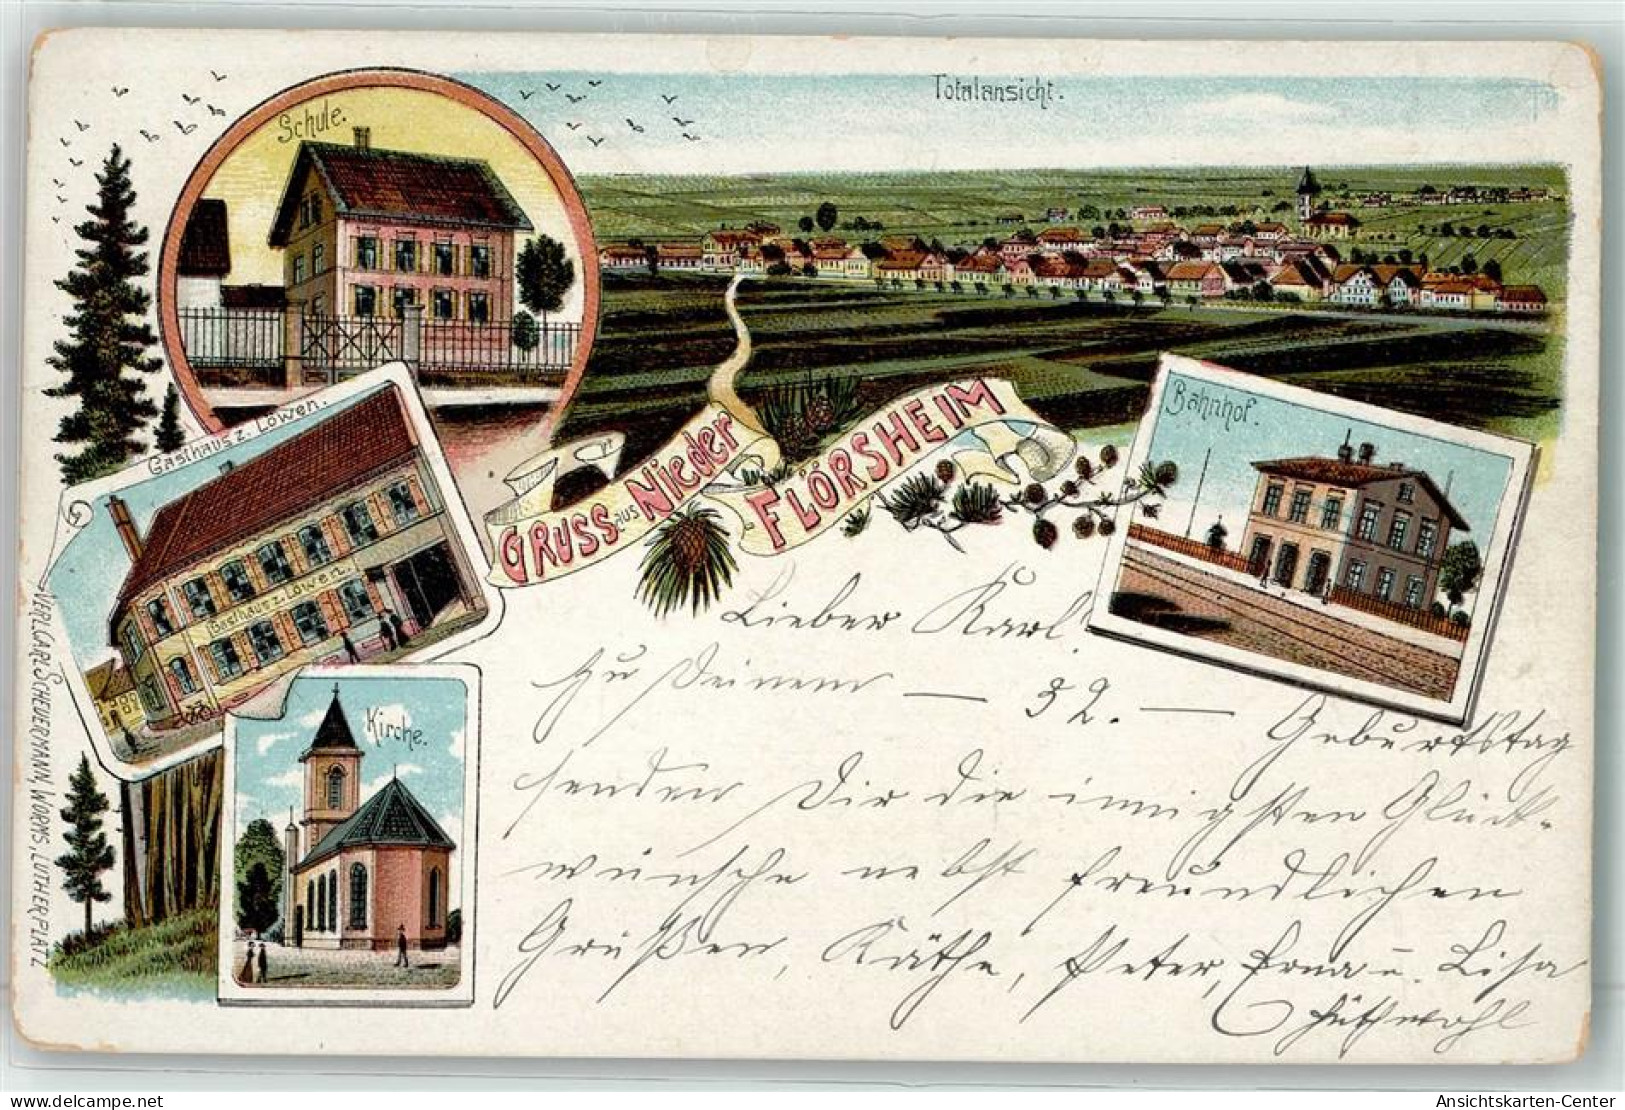 Totalansicht.
Schule.
Gasthaus z. Löwen.
Gasthaus z. Löwen.
Bahnhof.
GRUSS aus NIEDER
FLÖRSHEIM
Kirche.
VERL. CARL SCHEUERMANN, WORMS, LUTHERPLATZ
Lieber Karl!
Zu Deinem — 32. — Geburtstag
senden Dir die innigsten Glück-
wünsche nebst freundlichen
Grüßen, Käthe, Peter, Erna u. Lisa
Ansichtskarten-Center
delcampe.net